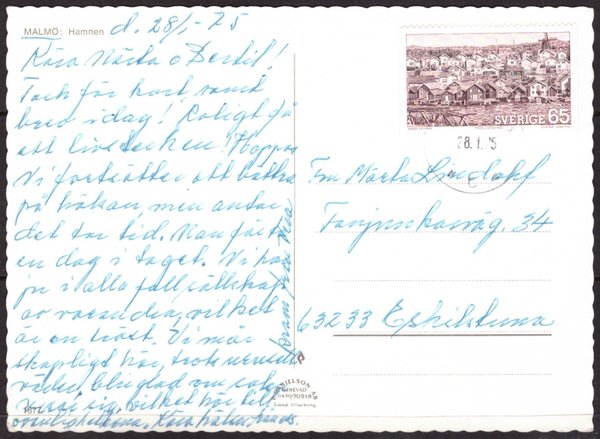 MALMÖ: Hamnen
d. 28/1-75
Kära Märta o Bertil!
Tack för kort, samt
brev i dag! Roligt få
ett livstecken! Hoppas
Vi fortsätter att bättra
på hälsan men antar
det tar tid. Man får ta
en dag i taget. Vi har
ju i alla fall sällskap
av varandra, vilket
är en tröst. Vi mår
skapligt här, trots
vädret,
sig, vilket hör till
Kära hälsn.
Kram från
SVERIGE 65
28.1.75
Fru Märta Lindlöf
Fanjunkarväg. 34
63233 Eskilstuna
DANIELSON AB
GENEVAD
0430/70918
Svensk tillverkning